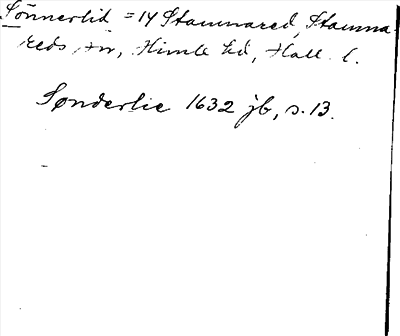 Sönnerlid = 14 Stamnared, Stamna-
reds sn, Himle hd, Hall. l.
Sønderlie 1632 jb, s. 13.